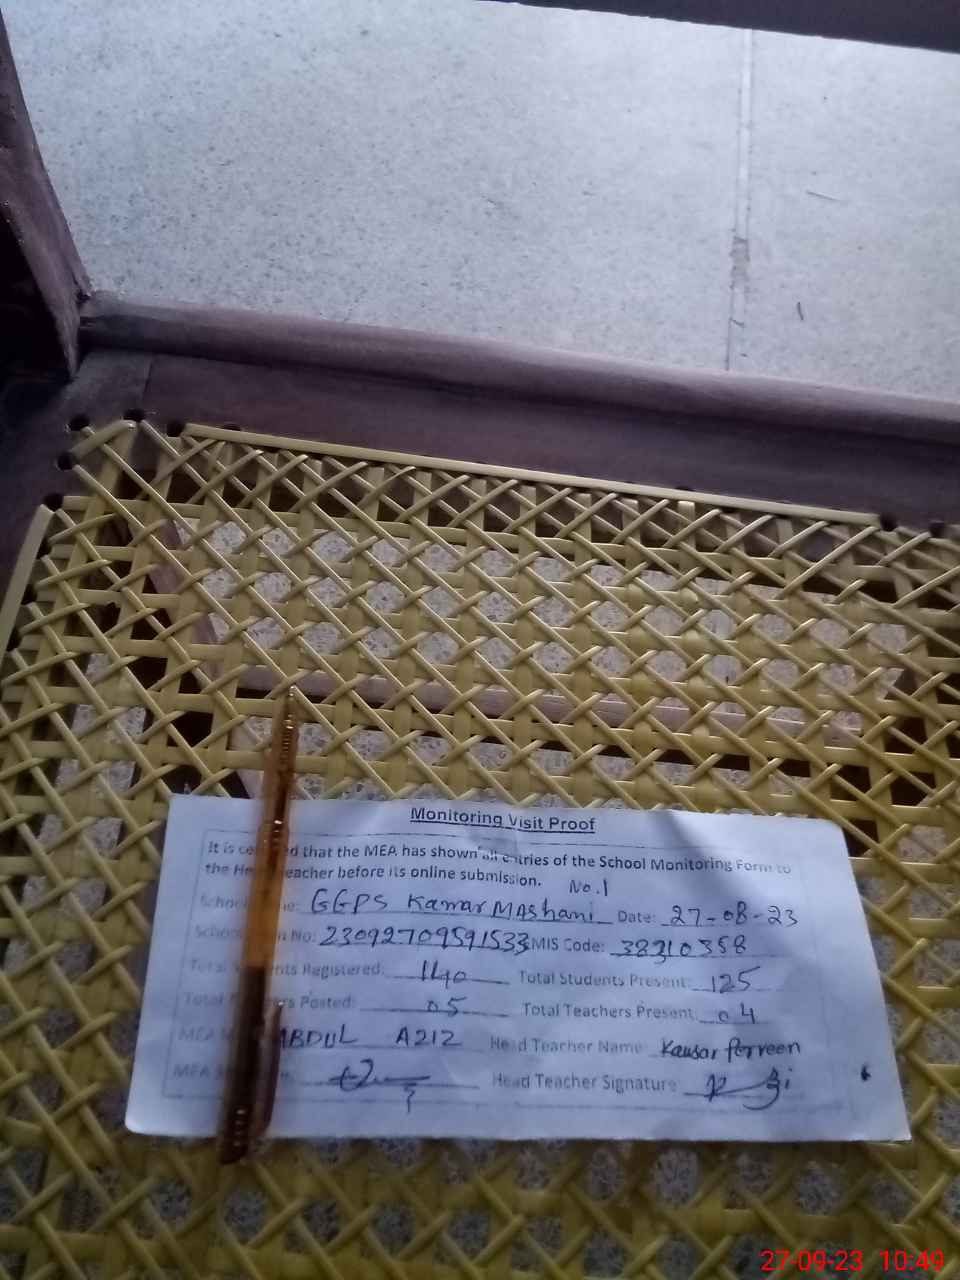 Monitoring Visit Proof
It is ce d that the MEA has shown all entries of the School Monitoring Form to
the He eacher before its online submission. No.1
School e: GGPS Kamar MAshani Date: 27-08-23
School n No: 23092709591533 EMIS Code: 38310358
Total nts Registered: 140 Total Students Present: 125
Total ers Posted: 05 Total Teachers Present: 04
MEA ABDUL A212 Head Teacher Name: Kausar Perveen
MEA Head Teacher Signature
27-09-23 10:49